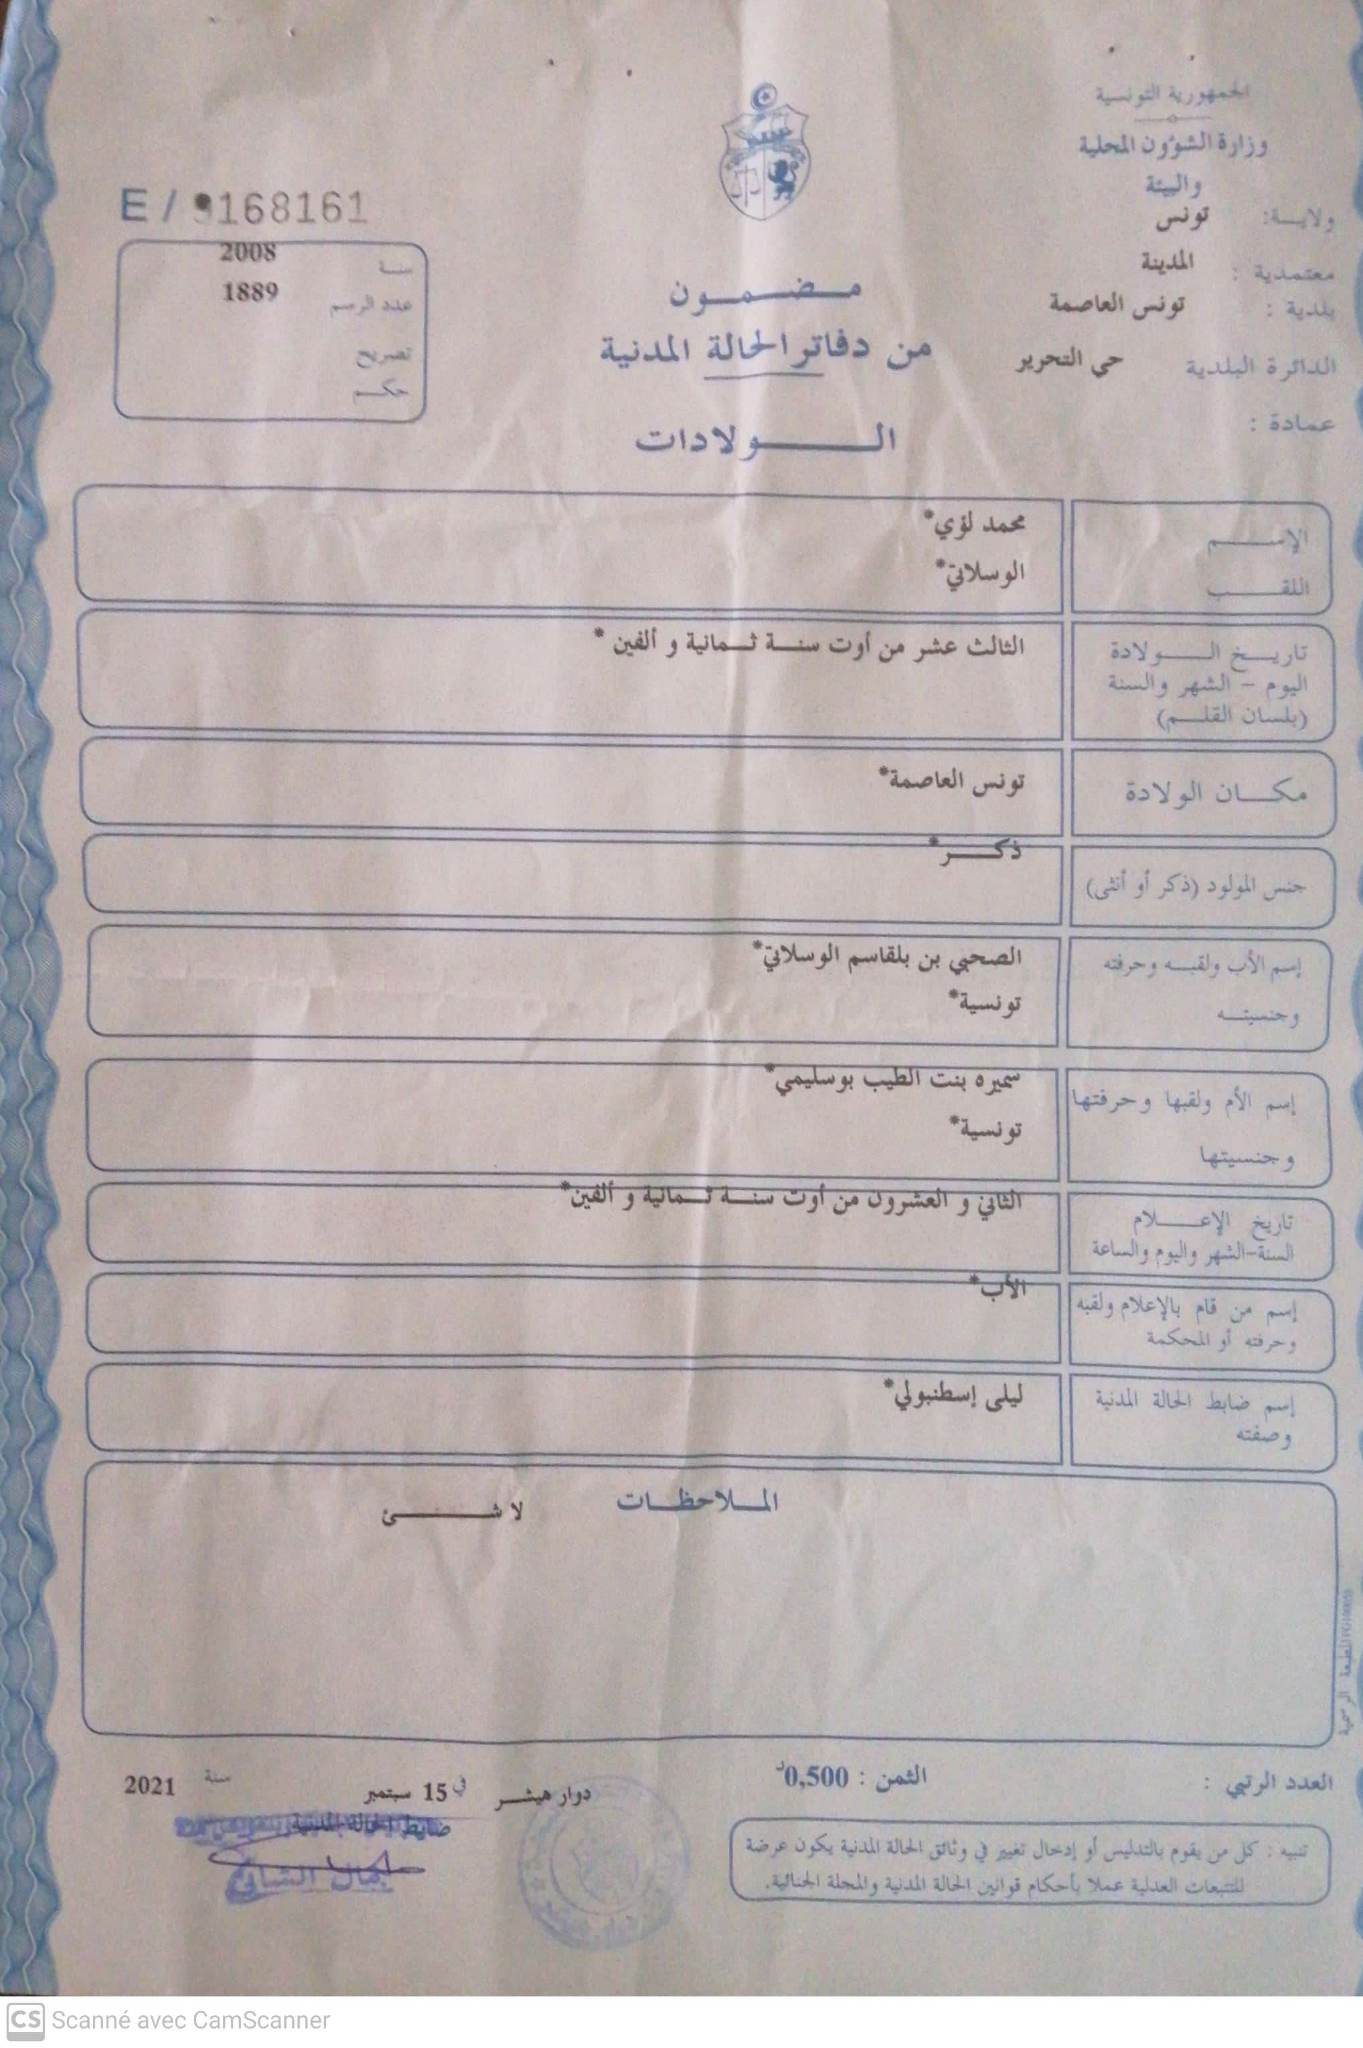 الجمهورية التونسية
وزارة الشؤون المحلية
والبيئة
ولايـــة: تونس
معتمدية : المدينة
بلدية : تونس العاصمة
الدائرة البلدية حي التحرير
عمادة :
E / 9168161
سنة 2008
عدد الرسم 1889
تصريح
حكم
مـضـمـون
من دفاتر الحالة المدنية
الـولادات
الإســم محمد لؤي*
اللقـب الوسلاتي*
تاريـخ الـولادة
اليوم - الشهر والسنة
(بلسان القلـم)
الثالث عشر من أوت سنـة ثـمانية و ألفين *
مكـان الولادة تونس العاصمة*
جنس المولود (ذكر أو أنثى) ذكـر*
إسم الأب ولقبـه وحرفته الصحبي بن بلقاسم الوسلاتي*
وجنسيتـه تونسية*
إسم الأم ولقبها وحرفتها سميره بنت الطيب بوسليمي*
وجنسيتها تونسية*
تاريخ الإعـلام
السنة-الشهر واليوم والساعة
الثاني و العشرون من أوت سنـة ثـمانية و ألفين*
إسم من قام بالإعلام ولقبه
وحرفته أو المحكمة
الأب*
إسم ضابط الحالة المدنية
وصفته
ليلى إسطنبولي*
المـلاحظـات
لا شـــئ
المطبعة الرسمية
العدد الرتبي :
الثمن : 0,500د
دوار هيشـر في 15 سبتمبر سنة 2021
ضابط الحالة المدنية
تنبيه : كل من يقوم بالتدليس أو إدخال تغيير في وثائق الحالة المدنية يكون عرضة
للتتبعات العدلية عملا بأحكام قوانين الحالة المدنية والمجلة الجنائية.
CS Scanné avec CamScanner